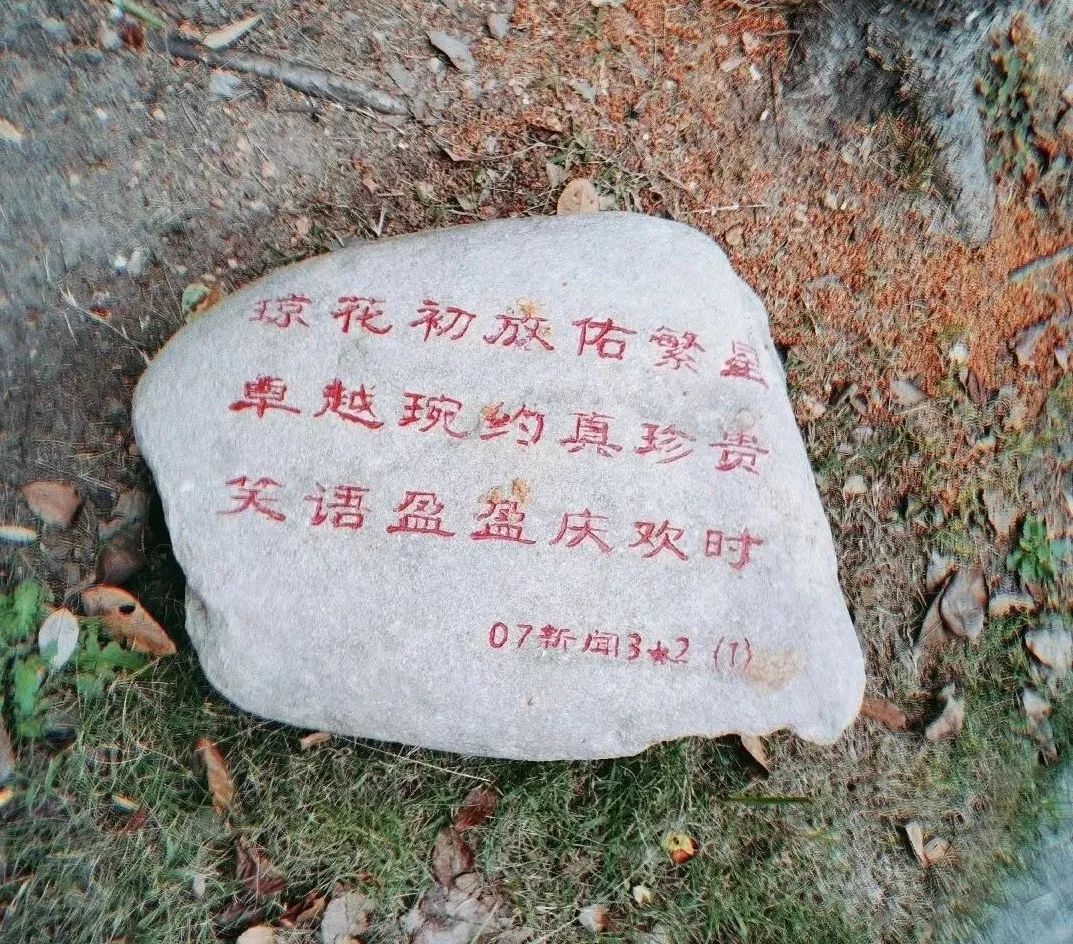 琼花初放佑繁星
卓越琬约真珍贵
笑语盈盈庆欢时
07新闻3★2(1)